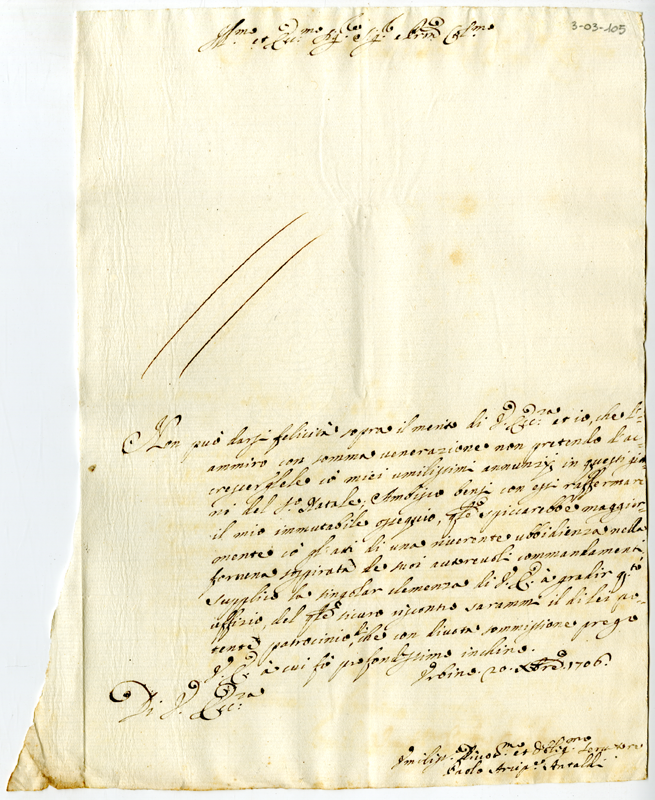 3-03-105
Ill.mo et Ecc.mo Sig.e Sig.e e Pron Col.mo
Non può darsi felicità sopra il merito di V. Ecc.za et io, che l'-
ammiro con somma venerazione non pretendo d'ac-
crescerglele cō miei umilissimi annunzij in questi gior-
ni del S.o Natale, Ambisco bensi con essi raffermare
il mio immutabile ossequio, q̃le spiccarebbe maggior-
mente cō gl'atti di una riverente ubbidienza nella
fortuna sospirata de suoi autorevoli commandamenti
supplico la singolar clemenza di V. E. à gradir q.to
uffizio, del q̃le sicuro riscontro sarammi il di lei po-
tente patrocinio, che con divota sommissione prego
V. E. à cui fō profondissimo inchino.
Urbino 20 Xbre 1706.
Di V. Ecc.za
Umiliss. Divo.mo et Oblig.mo Servitore
Paolo Antaldi